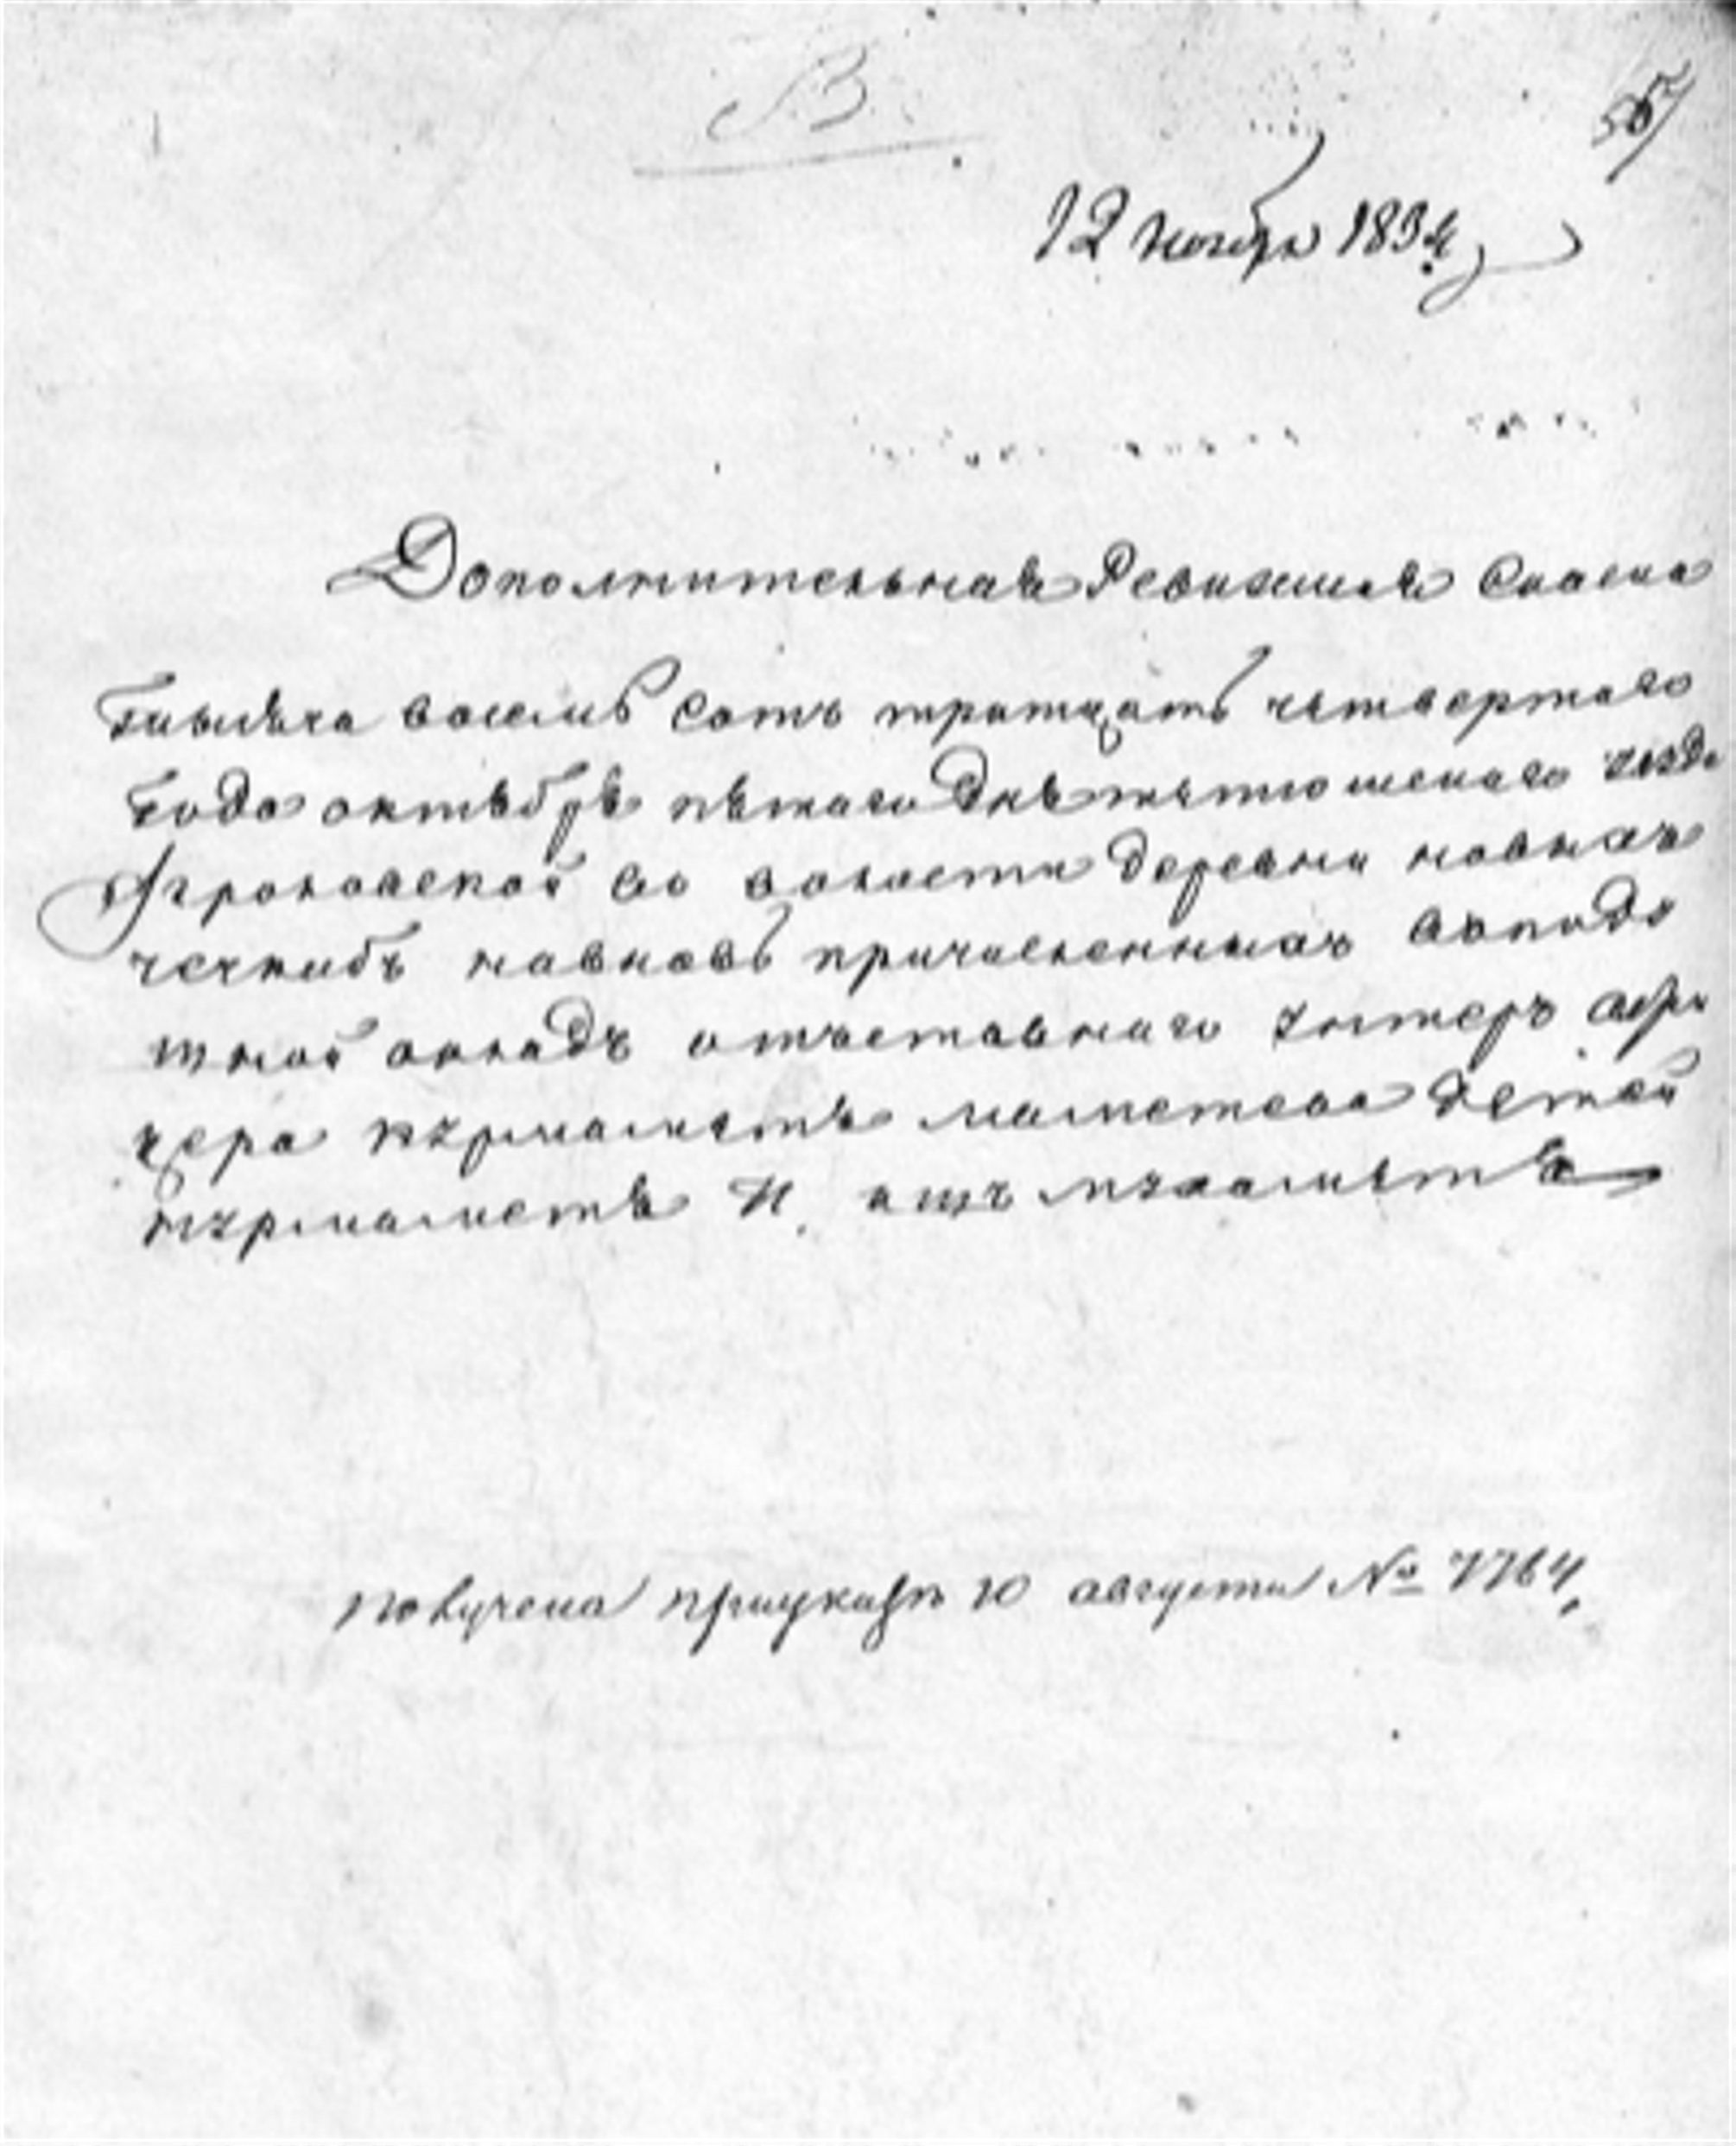 В
56
12 ноября 1834
Дополнительная Ревизская Скаска
тысяча восемь Сотъ тритцать четвертаго
Года октября пятаго дня тетюшскаго уезда
во волости деревни новыхъ
чечкабъ навновь причисленныхъ въпода
тной окладъ отъставнаго унтеръ офи
цера маметева детей
И
получена приуказе 10 августа № 7764